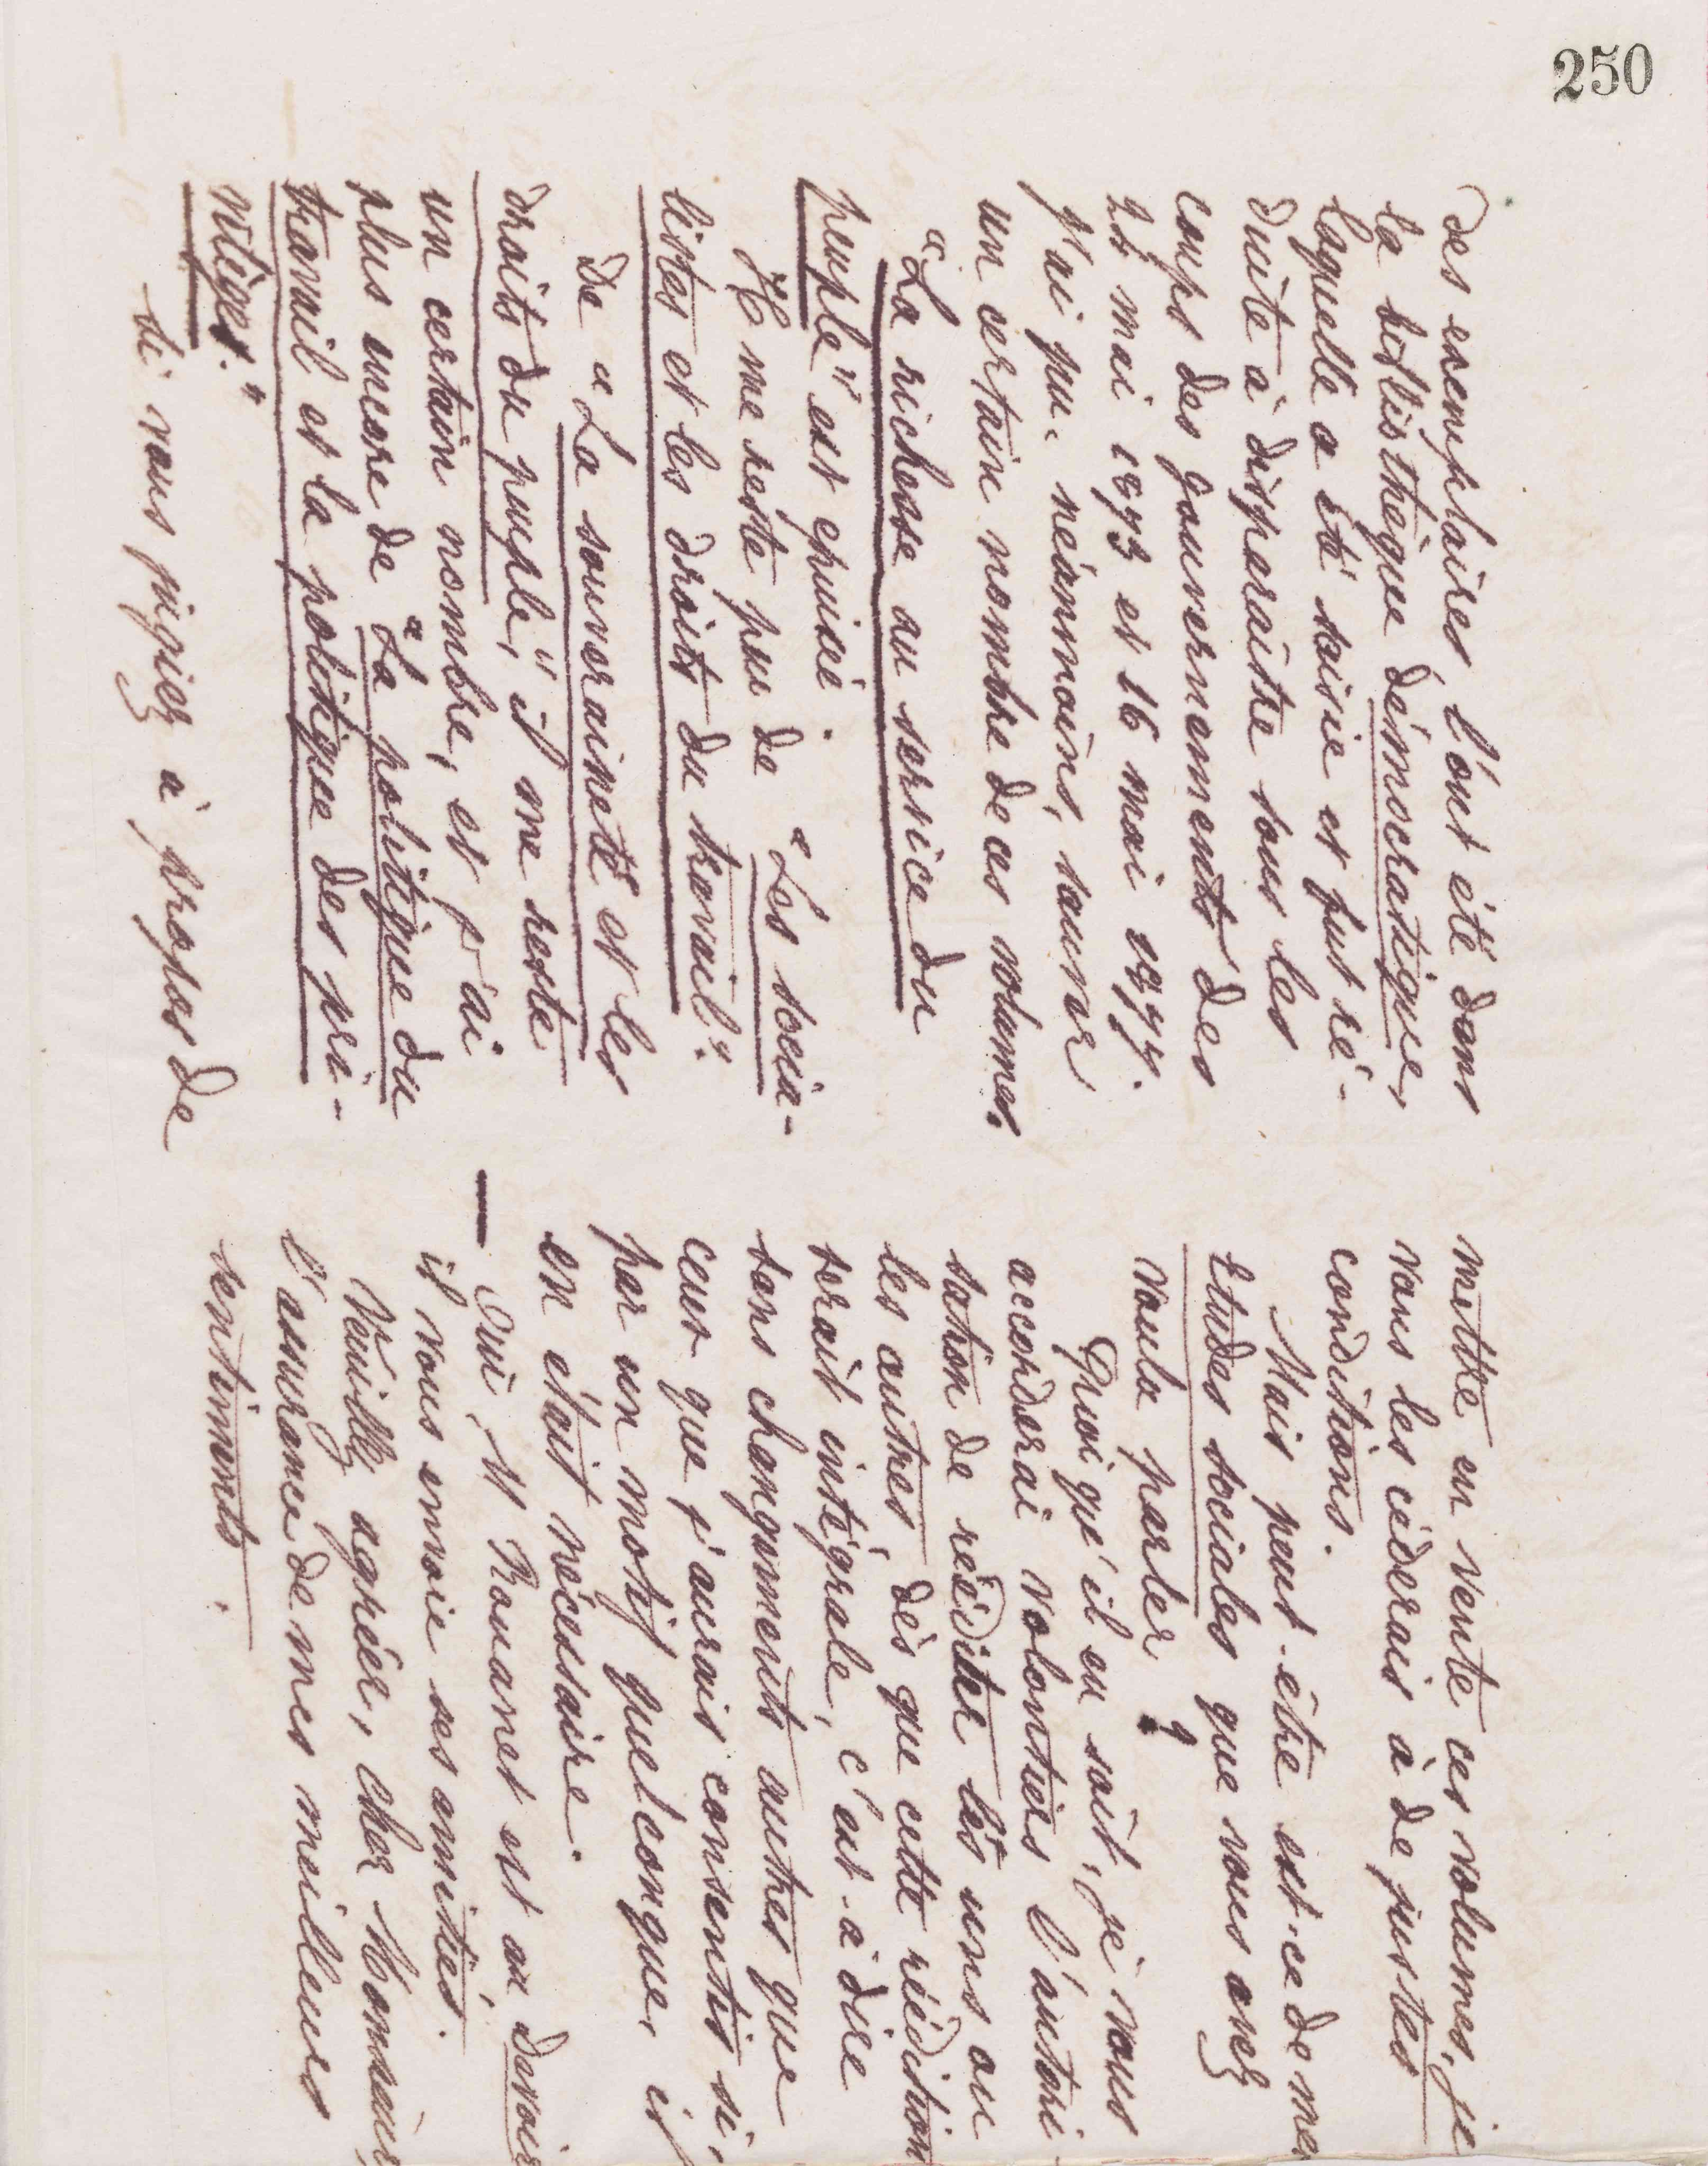 250
des exemplaires, l'out été dans
la bibliothèque démocratique,
laquelle a été saisie et fut ré-
duite à disparaître sous les
coups des gouvernements des
24 mai 1873 et 16 mai 1877.
J'ai pu, néanmoins, sauver
un certain nombre de ces volumes.
"La richesse au service du
peuple" est épuisé.
Il me reste peu de "Les socia-
listes et les droits du travail".
De "La souveraineté et les
droits du peuple," il me reste
un certain nombre, et j'ai
plus encore de "La politique du
travail et la politique des pri-
vilèges."
Si vous jugiez à propos de
mettre en vente ces volumes, je
vous les cèderais à de justes
conditions.
Mais peut-être est-ce de mes
Etudes sociales que vous avez
voulu parler ?
Quoi qu'il en soit, je vous
accorderai volontiers l'autori-
sation de rééditer les uns ou
les autres, dès que cette réédition
serait intégrale, c'est-à-dire
sans changements autres que
ceux que j'aurais consentis si,
par un motif quelconque, il
en était nécessaire.
— Oui, M Rouanet est au Devoir
il vous envoie ses amitiés.
Veuillez agréer, cher Monsieur,
l'assurance de mes meilleurs
sentiments.